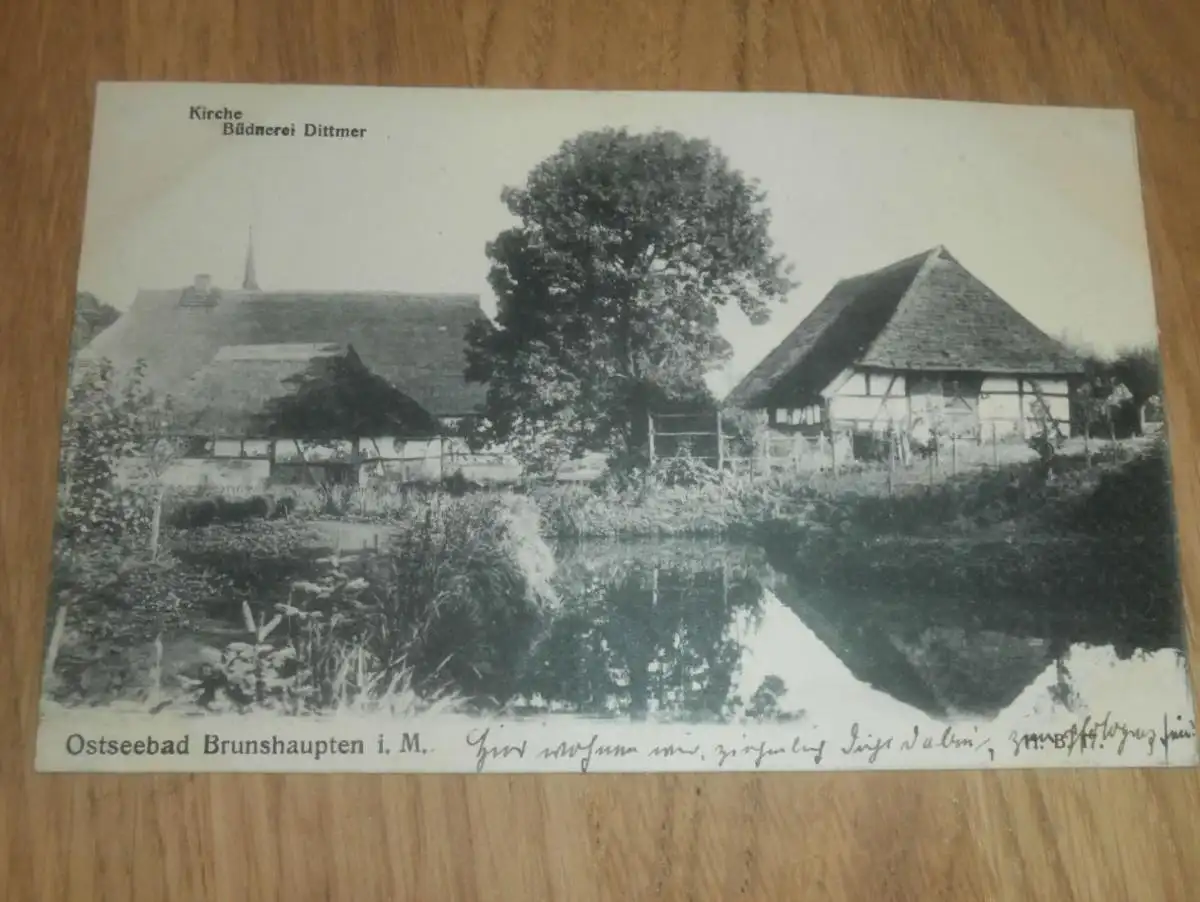 Kirche
Büdnerei Dittmer
Ostseebad Brunshaupten i. M. Hier wohnen wir, ziemlich dicht dabei,